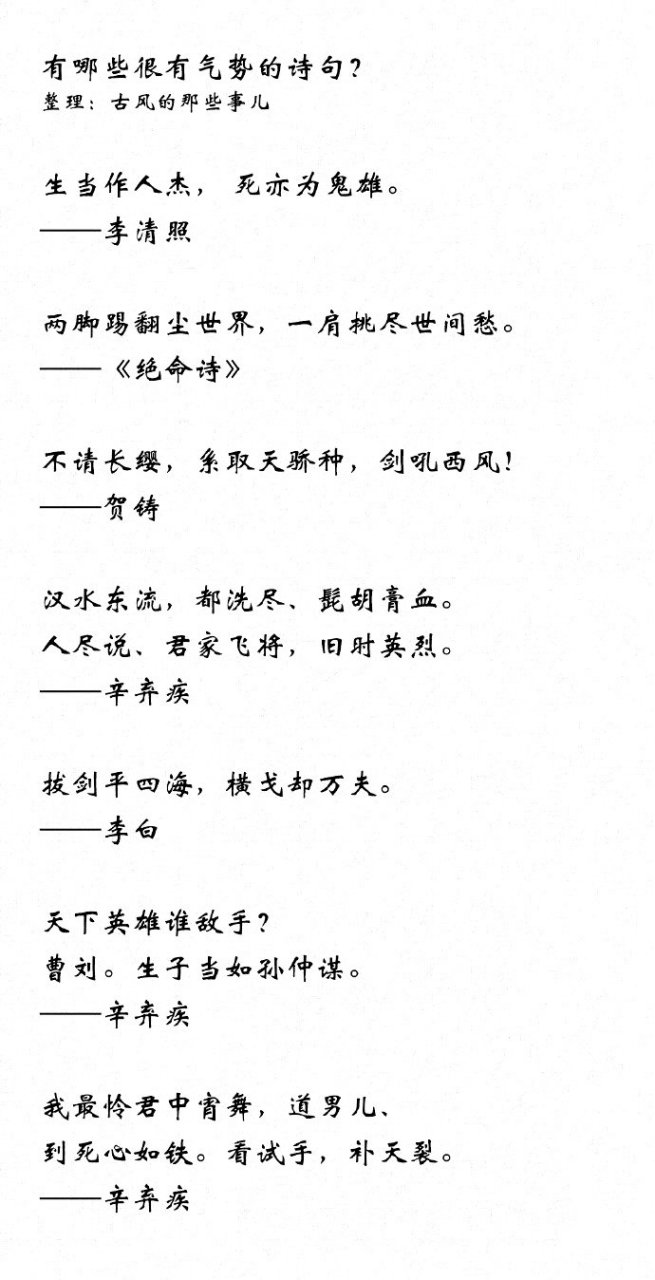 有哪些很有气势的诗句？
整理：古风的那些事儿
生当作人杰， 死亦为鬼雄。
——李清照
两脚踢翻尘世界，一肩挑尽世间愁。
——《绝命诗》
不请长缨，系取天骄种，剑吼西风！
——贺铸
汉水东流，都洗尽、髭胡膏血。
人尽说、君家飞将，旧时英烈。
——辛弃疾
拔剑平四海，横戈却万夫。
——李白
天下英雄谁敌手？
曹刘。生子当如孙仲谋。
——辛弃疾
我最怜君中宵舞，道男儿、
到死心如铁。看试手，补天裂。
——辛弃疾